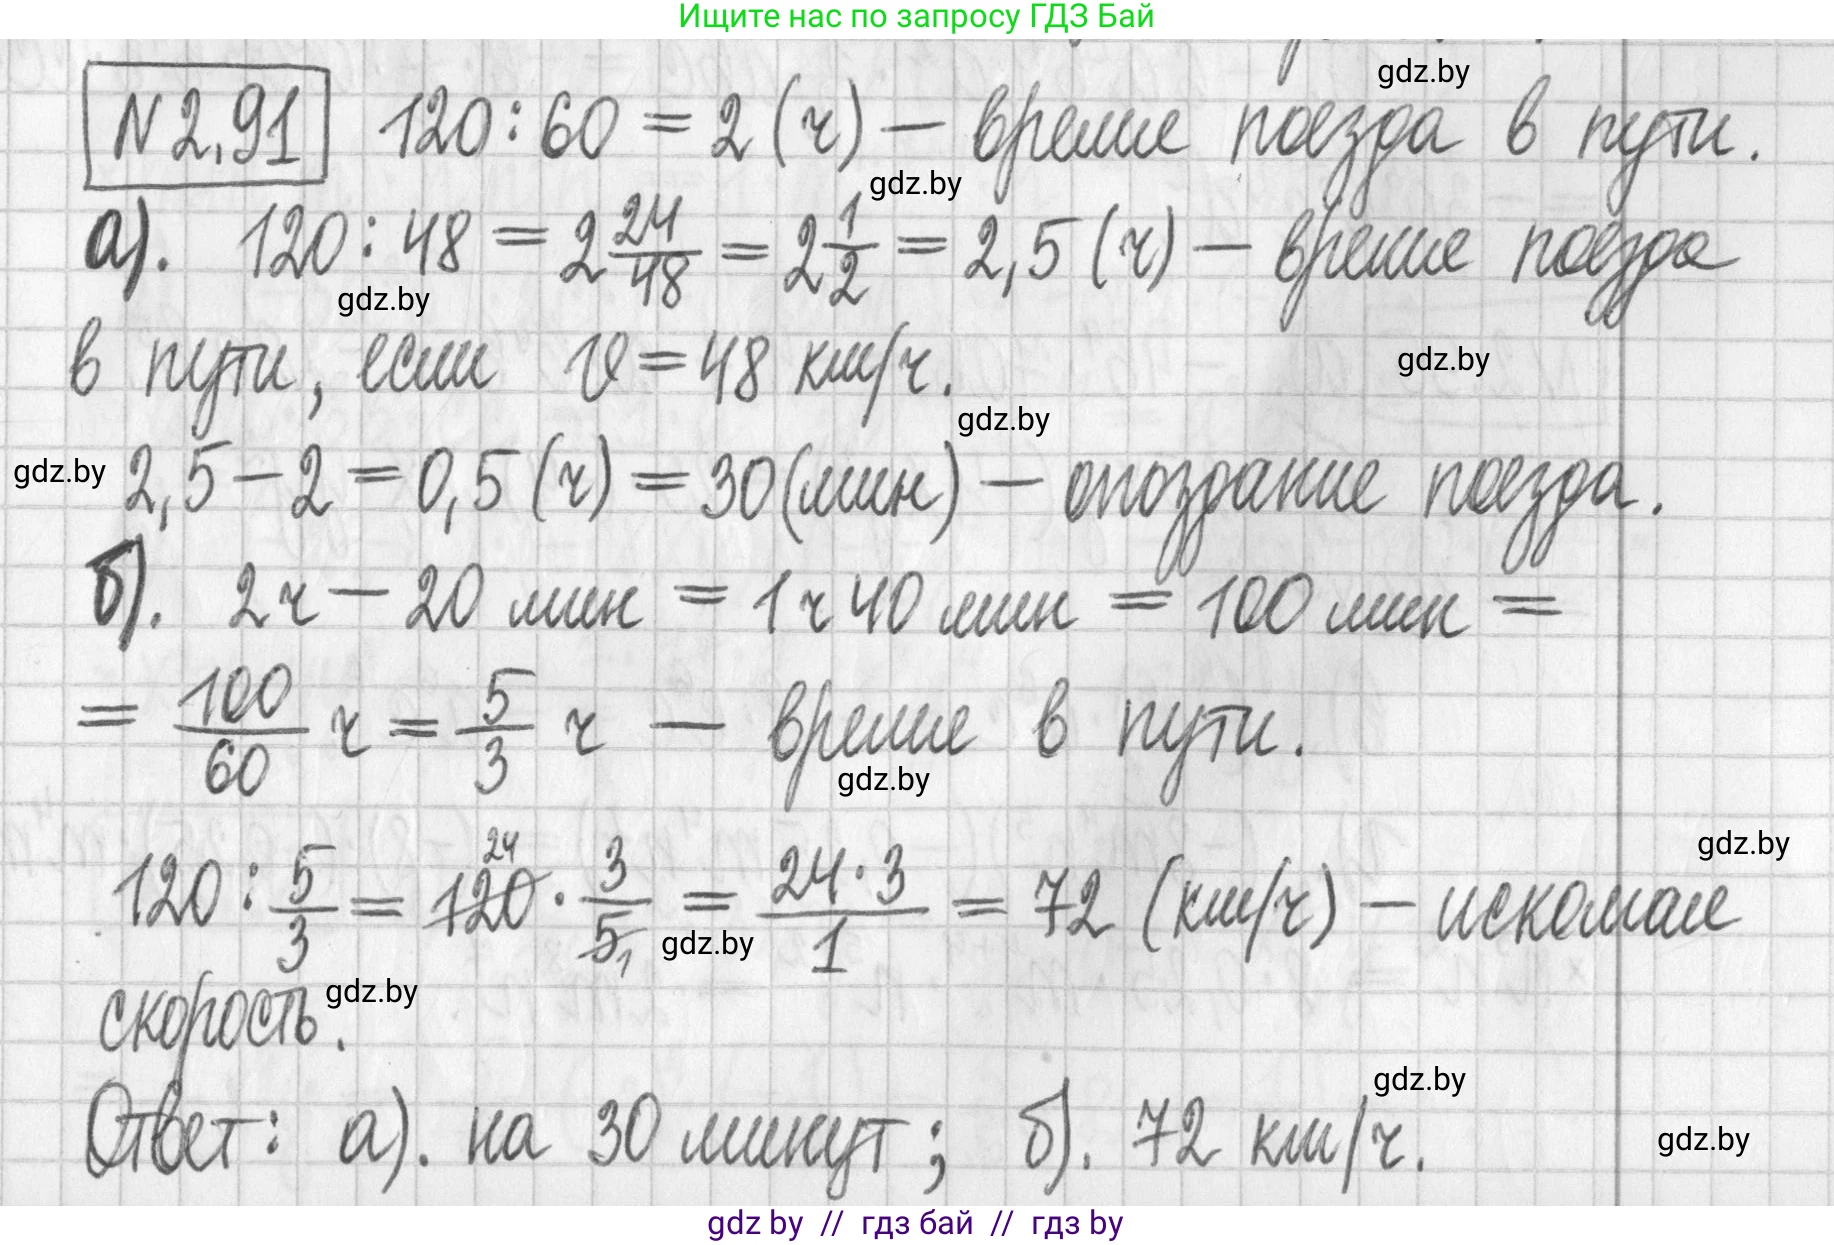 Ищите нас по запросу ГДЗ Бай
gdz.by
N 2,91 120:60 = 2 (ч) — время поезда в пути.
gdz.by
а). 120:48 = 2 24/48 = 2 1/2 = 2,5 (ч) — время поезда
gdz.by
в пути, если v = 48 км/ч.
gdz.by
gdz.by
gdz.by
2,5 – 2 = 0,5 (ч) = 30 (мин) — опоздание поезда.
б). 2ч – 20 мин = 1 ч 40 мин = 100 мин =
= 100/60 ч = 5/3 ч — время в пути.
gdz.by
gdz.by
120 : 5/3 = 120 24 · 3/5 1 = 24·3/1 = 72 (км/ч) — искомая
gdz.by
скорость.
gdz.by
gdz.by
Ответ: а). на 30 минут; б). 72 км/ч.
gdz.by
gdz by // гдз бай // гдз by